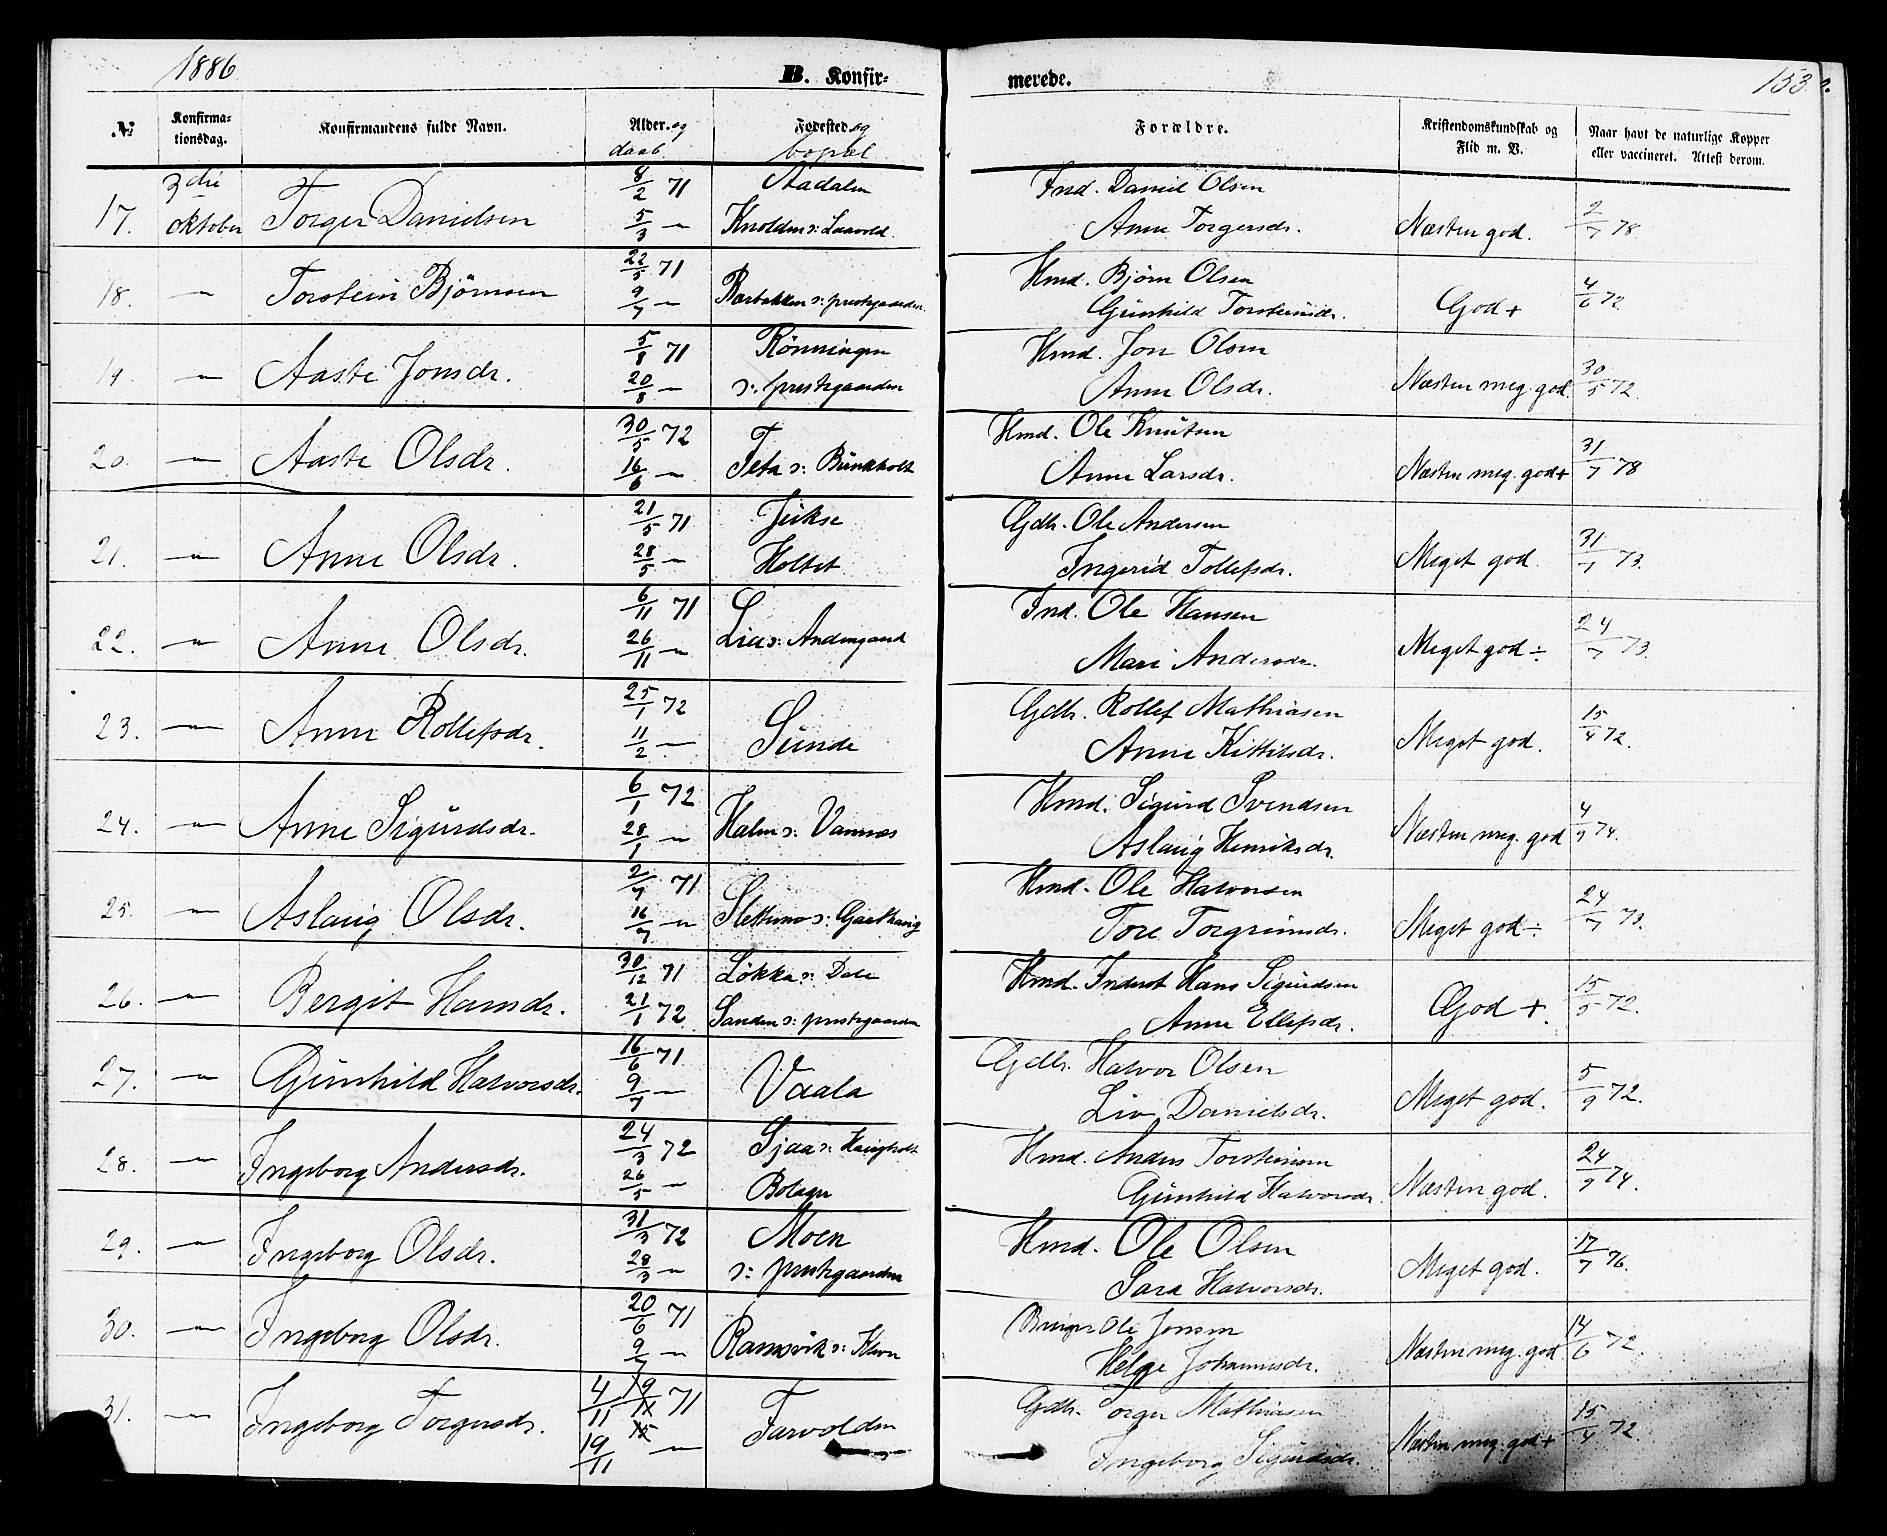 1886
B. Konfir-
merede.
153.
№
Konfirma-
tionsdag.
Konfirmandens fulde Navn.
Alder. og
daab.
Fødested og
bopæl
Forældre.
Kristendomskundskab og
Flid m. V.
Naar havt de naturlige Kopper
eller vaccineret. Attest derom.
17. 3die Oktober Torger Danielsen 8/2 71 Aadalen Ind. Daniel Olsen
5/3 — Knolden s: Laavold. Anne Torgersdr. Næsten god. 2/7 78
18. — Torstein Bjørnsen 22/5 71 Hmd. Bjørn Olsen
9/7 — s: prestegaarden. Gunhild Torsteinsdr. God + 4/6 72
19. — Aaste Jonsdr. 5/8 71 Rönningen Hmd. Jon Olsen
20/8 — s: prestegaarden Anne Olsdr. Næsten meg. god. 30/5 72.
20. — Aaste Olsdr. 30/5 72 Hmd. Ole Knutsen
16/6 — Teta s: Bunkholt Anne Larsdr. Næsten meg. god + 31/7 78
21. — Anne Olsdr. 21/5 71 Jukse Gdbr. Ole Andersen
28/5 — Holtet Ingerid Tollefsdr. Meget god. 31/7 73.
22. — Anne Olsdr. 6/11 71 Ind. Ole Hansen
26/11 — Lia s: Andersgaard Mari Andersdr. Meget god ÷ 24/7 73.
23. — Anne Rollefsdr. 25/1 72 Gdbr. Rollef Mathiasen
11/2 — Sunde Anne Kittilsdr. Meget god. 15/4 72.
24. — Anne Sigurdsdr. 6/1 72 Hmd. Sigurd Svendsen
28/1 — Halm s: Vannes Aslaug Henriksdr. Næsten meg. god 4/9 74.
25. — Aslaug Olsdr. 2/7 71 Hmd. Ole Halvorsen
16/7 — Slettene s: Tore Torgrimsdr. Meget god ÷ 24/7 73.
26. — Bergit Hansdr. 30/12 71 Løkka s: Dale Hmd. Inderst Hans Sigurdsen
21/1 72 Sanden s: prestegaarden Anne Ellefsdr. God +. 15/5 72.
27. — Gunhild Halvorsdr. 16/6 71 Gdbr. Halvor Olsen
9/7 — Vaala Liv Danielsdr. Meget god. 5/9 72.
28. — Ingeborg Andersdr. 24/3 72 Sjaa s: Haugholt Hmd. Anders Torsteinsen
26/5 — Bolager Gunhild Halvorsdr. Næsten god. 24/9 74.
29. — Ingeborg Olsdr. 31/3 72 Moen Hmd. Ole Olsen
28/3 — s: prestegaarden Sara Halvorsdr. Meget god. 17/7 76.
30. — Ingeborg Olsdr. 20/6 71 Ole Jonsen
9/7 — Ramsvik s: Helge Johannesdr. Næsten meg. god 14/6 72.
31. — Ingeborg Torgersdr. 4/11 71 Gdbr. Torger Mathiasen
19/11 — Farvolden Ingeborg Sigurdsdr. Næsten meg. god + 15/4 72